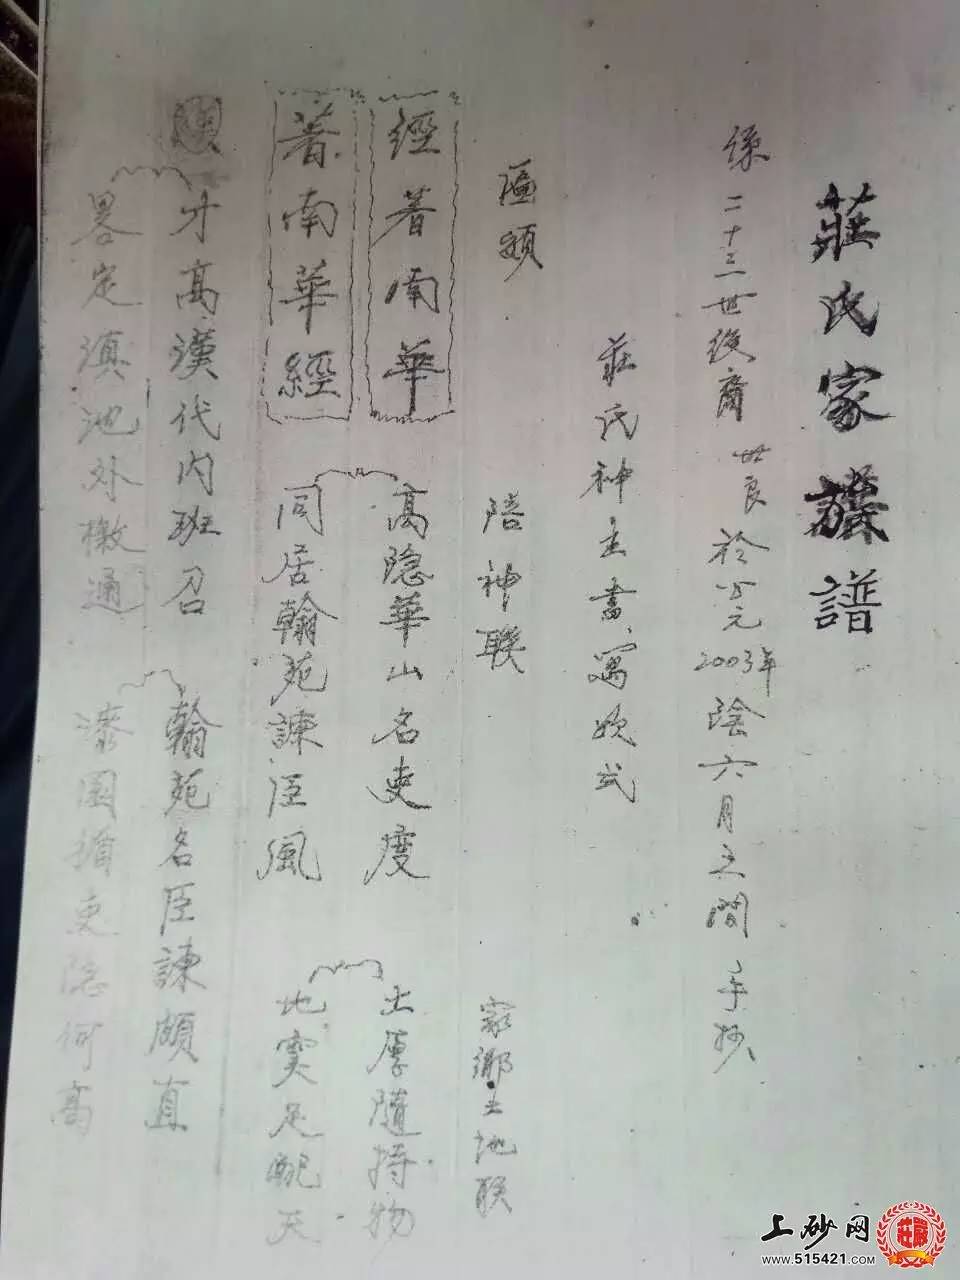 莊氏家譜
二十三世後裔 世良於公元2003年陰六月之間 手抄
莊氏神主書寫欵式
匾額
陪神联
家鄉土地联
經著南華
高隐華山名吏度
土厚隨持物
著南華經
同居翰苑諫臣風
地灵足配天
才高漢代内班召
翰苑名臣諫頗直
畧定滇池外檄通
漆園循吏隐何高
上砂网
www.515421.com